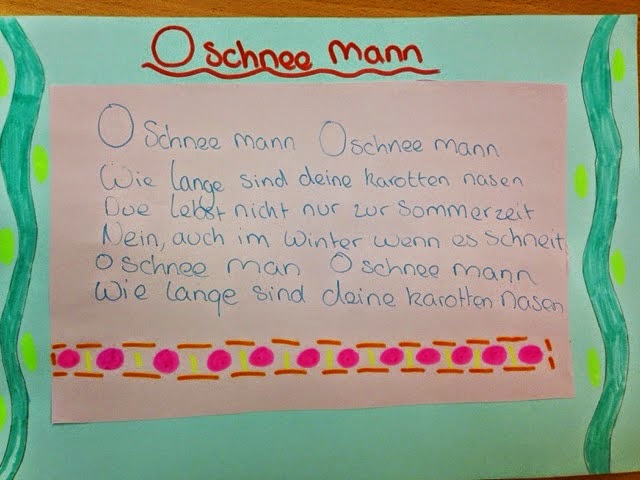 O schnee mann
O Schnee mann O schnee mann
Wie lange sind deine karotten nasen
Due lebst nicht nur zur Sommerzeit
Nein, auch im Winter wenn es Schneit
O schnee man O schnee mann
Wie lange sind deine karotten nasen